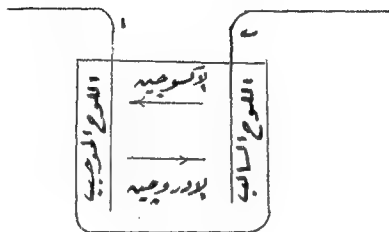 ا
ب
اللوح الموجب
الاكسوجين
الادروجين
اللوح السالب